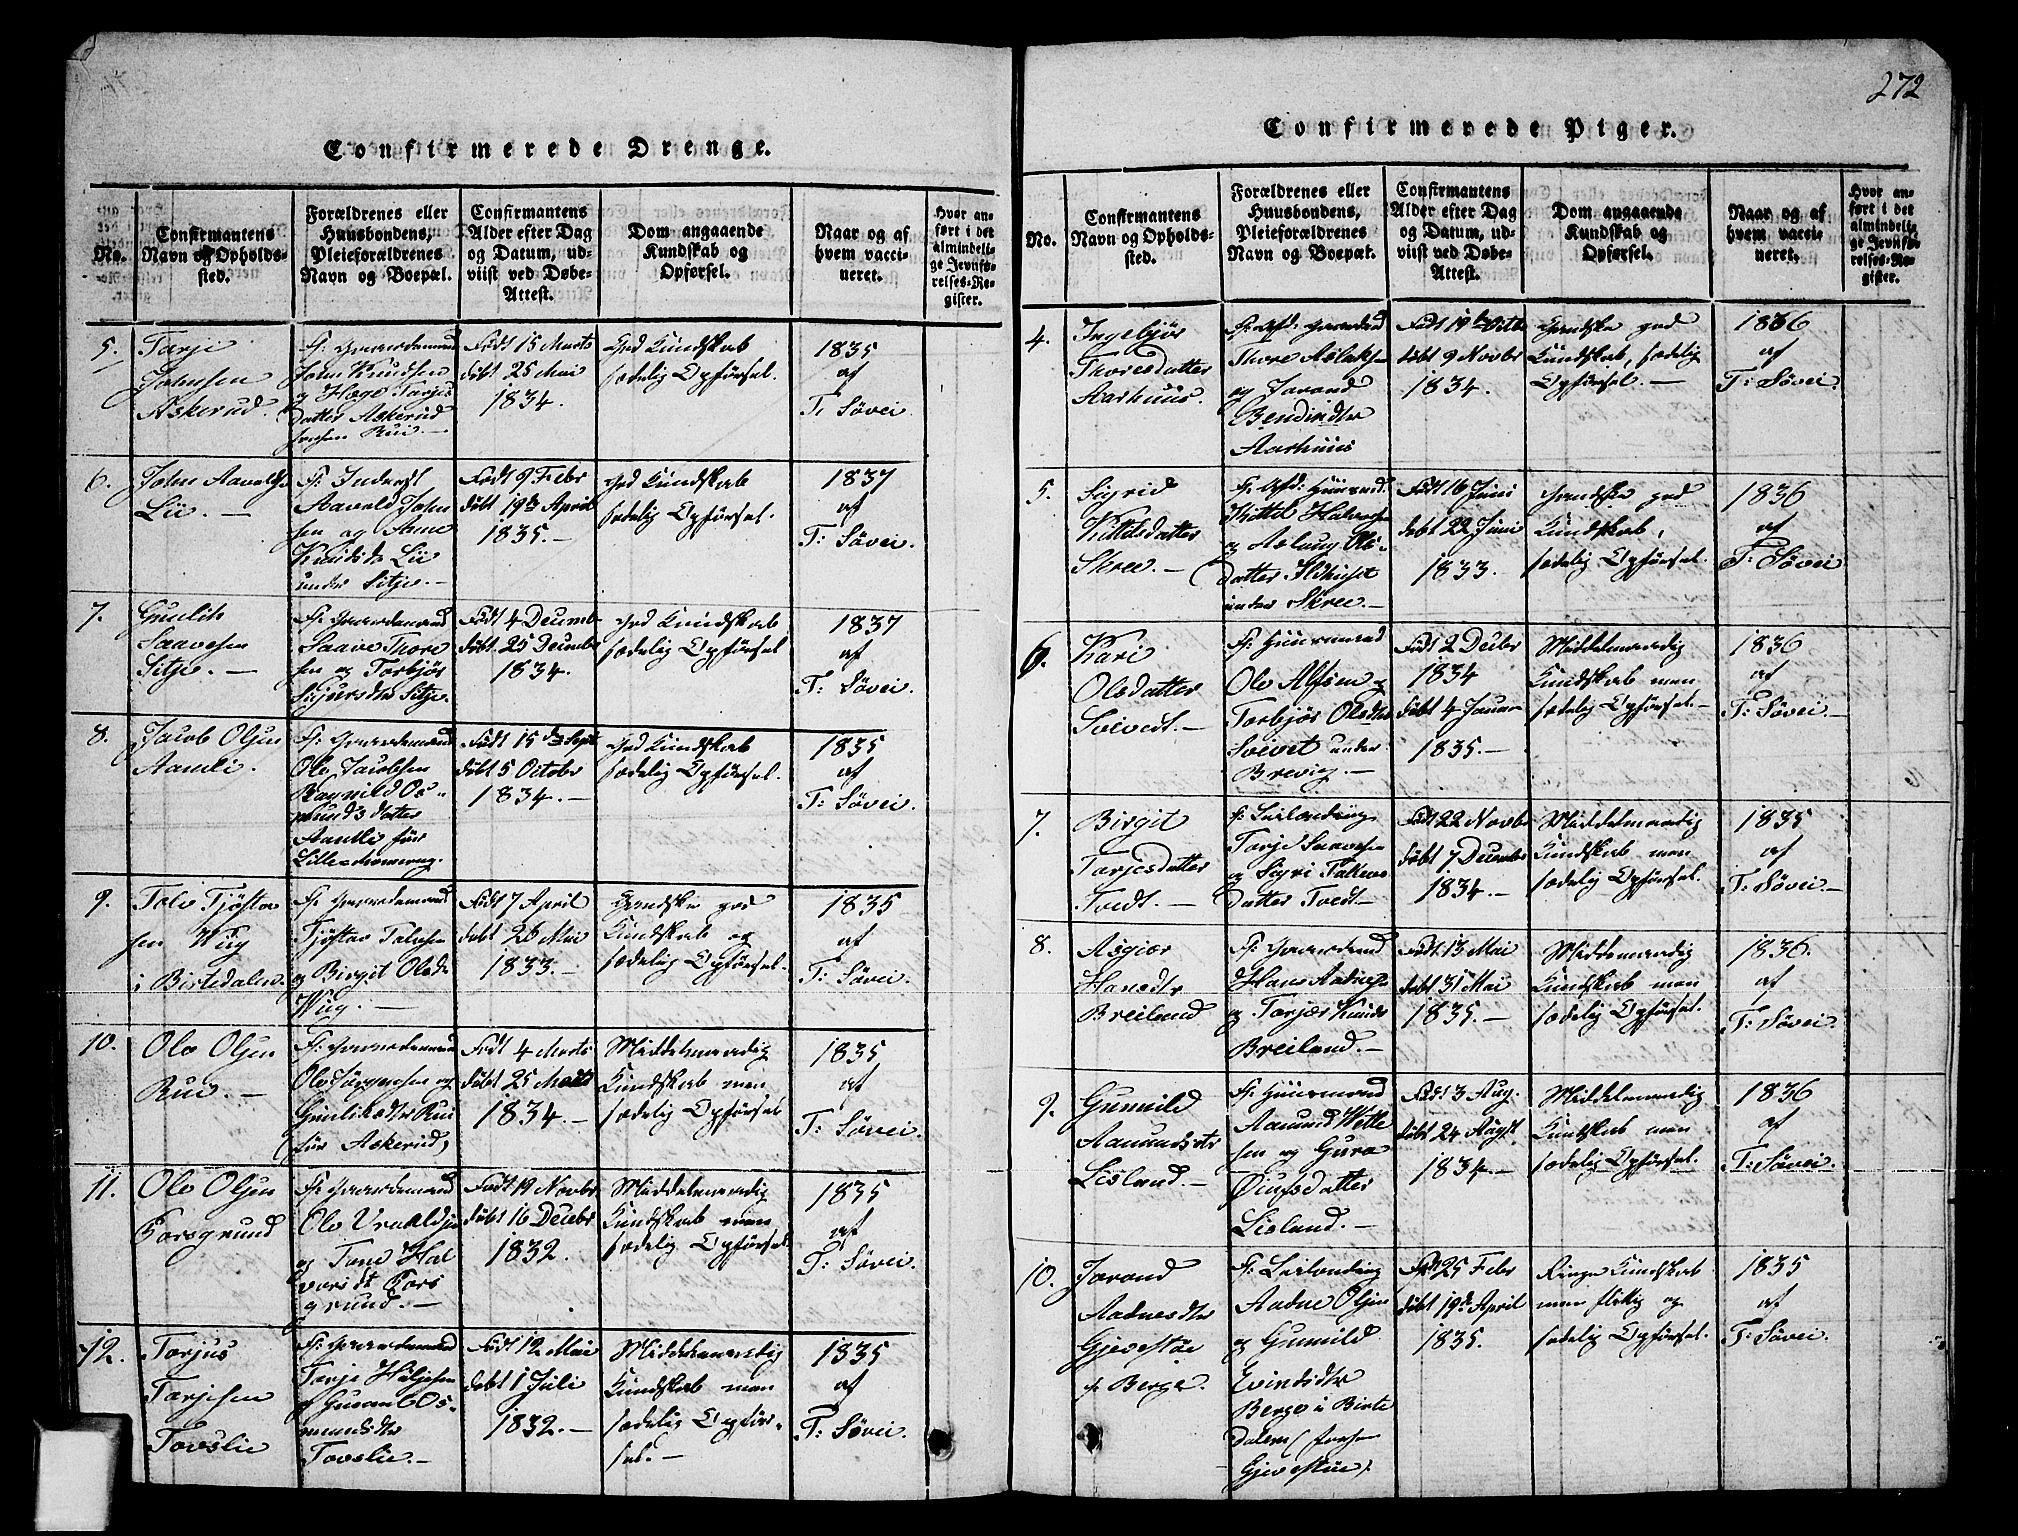 272
Confirmerede Drenge.
No.
Confirmantens Navn og Opholds-sted.
Forældrenes eller Huusbondens, Pleieforældrenes Navn og Boepæl.
Confirmantens Alder efter Dag og Datum, ud-viist ved Døbe-Attest.
Dom angaaende Kundskab og Opførsel.
Naar og af hvem vacci-neret.
Hvor an-ført i det almindeli-ge Jevnfø-relses-Re-gister.
5.
Tarje
Johnsen
Askerud.
F: Gaardemand
John Knudsen
og Hæge Tarjus
datter Askerud
Rui.—
Født 15 Marts
døbt 25 Mai
1834.
God Kundskab
sædelig Opførsel.
1835
af
T: Søvei.
6.
John Aavalds.
Lie.—
F: Inderst
Aavald John
sen og Anne
Knudsdt Lie
under Sitje.—
Født 9 Febr
døbt 19de April
1835.—
God Kundskab
sædelig Opførsel.
1837
af
T: Søvei.
7.
Gunlik
Saavesen
Sitje.—
F: Gaardemand
Saave Thore
sen og Torbjør
Sjursdtr Sitje.
Født 4 Decemb
døbt 25 Decembr
1834.
God Kundskab
sædelig Opførsel
1837
af
T: Søvei.
8.
Jacob Olsen
Aamli.
F: Gaardemand
Ole Jacobsen
Ragnild Os-
munds datter
Aamli før
Født 15 de Sept
døbt 5 Octobr
1834.—
God Kundskab
sædelig Opførsel.
1835
af
T: Søvei.
9.
Talv Tjøsta
sen Wiig
i Birtedalen.
F: Gaardemand
Tjøstav Talvsen
og Birgit Olsdr
Wiig.—
Født 7 April
døbt 26 Mai
1833.—
Gandske god
Kundskab og
sædelig Opførsel.
1835
af
T: Søvei.
10.
Ole Olsen
Rui.—
F: Gaardemand
Ole Jørgensen og
Rui
før Askerud,
Født 4 Marts
døbt 25 Marts
1834.—
Middelmaadig
Kundskab men
sædelig Opførsel
1835
af
T: Søvei.
11.
Ole Olsen
Forsgrund
F: Gaardemand
Ole Vraaldsen
og Tone Hal
vorsdt Fors
grund.—
Født 19 Novbr
døbt 16 Decbr
1832.
Middelmaadig
Kundskab men
sædelig Opførsel.
1835
af
T: Søvei.
12.
Torjus
Tarjesen
Tovslie
F: Gaardemand
Tarje Høljesen
og Os-
mundsdtr
Tovslie.—
Født 12 Mai
døbt 1 Juli
1832.—
Middelmaadig
Kundskab men
sædelig Opfør-
sel.—
1835
af
T: Søvei.
Confirmerede Piger.
No.
Confirmantens Navn og Opholds-sted.
Forældrenes eller Huusbondens, Pleieforældrenes Navn og Boepæl.
Confirmantens Alder efter Dag og Datum, ud-viist ved Døbe-Attest.
Dom angaaende Kundskab og Opførsel.
Naar og af hvem vacci-neret.
Hvor an-ført i det almindeli-ge Jevnfø-relses-Re-gister.
4.
Ingebjør
Thoresdatter
Aarhuus.
F: Afd: Gaardmd
Thore Aslaks
og Jorand
Bendixdtr
Aarhuus
Født 19de Octbr
døbt 9 Novbr
1834.
Gandske god
Kundskab, sædelig
Opførsel.—
1836
af
T: Søvei.
5.
Sigrid
Kittilsdatter
Skree.—
F: Afd: Huusmd.
Kittil Halvors
og Aslaug Ols-
datter Ildhuset
under Skree.—
Født 16 Juni
døbt 22 Juni
1833.
Gandske god
Kundskab,
sædelig Opførsel.
1836
af
T: Søvei
6.
Kari
Olsdatter
Soivedt.—
F: Huusmand
Ole Alfsen og
Torbjør Olsdtr
Soivet under
Brevig.—
Født 2 Decbr
1834
døbt 4 Januar
1835.—
Middelmaadig
Kundskab men
sædelig Opførsel.—
1836
af
T: Søvei.—
7.
Birgit
Tarjesdatter
Tvedt.—
F: Leilænding
Tarje Saavesen
og Sigri Talvs
datter Tvedt—
Født 22 Novbr
døbt 7 Decembr
1834.—
Middelmaadig
Kundskab men
sædelig Opførsel.
1835
af
T: Søvei—
8.
Asgjær
Hansdtr
Breiland
F: Gaardmand
Hans Aadnes
og Torjær Knuds
Breiland.—
Født 13 Mai
døbt 31 Mai
1835.—
Middelmaadig
Kundskab men
sædelig Opførsel.
1836.
af
T: Søvei.
9.
Gunnild
Aamundsdtr
Lisland.—
F: Huusmand
Aamund Wetle
sen og Guro
Øiufsdatter
Lisland.—
Født 3 Aug.
døbt 24 Augst.
1834—
Middelmaadig
Kundskab men
sædelig Opførsel.
1836
af
T: Søvei.
10.
Jorand
Aadnesdtr
Gjevestøe
p. Berge.
F: Leilænding
Aadne Olsen
og Gunnild
Evindsdtr
Berge i Birte
dalen (
Gjevestøe).
Født 25 Febr
døbt 19de April
1835.
Ringe Kundskab
men flittig og
sædelig Opførsel.
1835
af
T: Søvei.